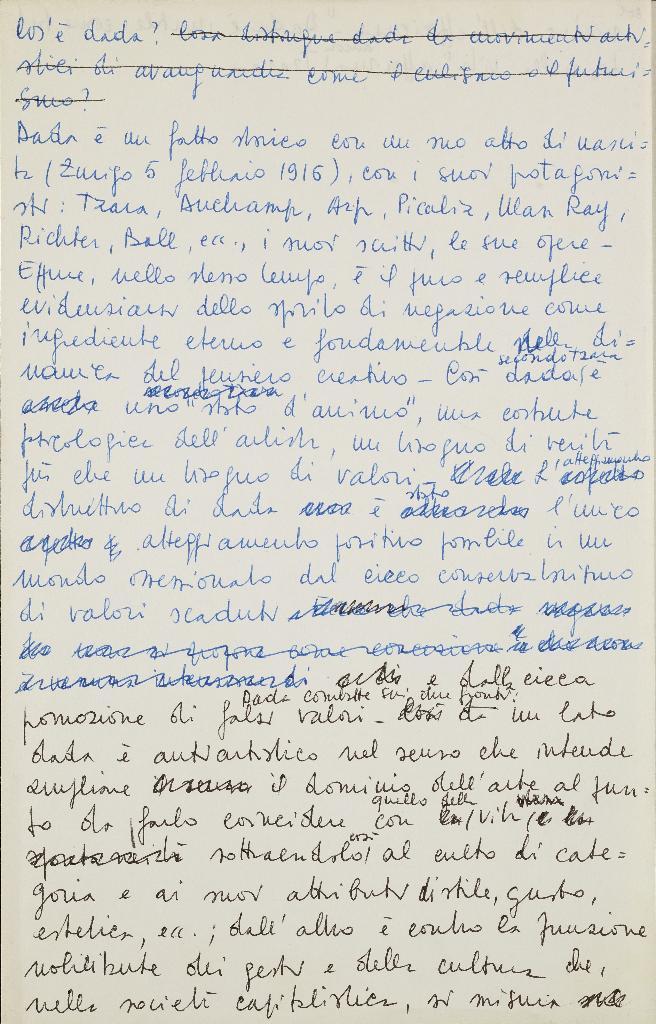 Cos'è dada? Cosa distingue dada da movimenti arti-
stici di avanguardia come il cubismo o il futuri=
smo?
Dada è un fatto storico con un suo atto di nasci=
ta (Zurigo 5 febbraio 1916), con i suoi protagoni=
sti: Tzara, Duchamp, Arp, Picabia, Man Ray,
Richter, Ball, ecc., i suoi scritti, le sue opere –
Eppure, nello stesso tempo, è il puro e semplice
evidenziarsi dello spirito di negazione come
ingrediente eterno e fondamentale della di=
namica del pensiero creativo – Così dada, secondo Tzara è
uno "stato d'animo", una costante
psicologica dell'artista, un bisogno di verità
più che un bisogno di valori. L'atteggiamento
distruttivo di dada è stato l'unico
atteggiamento positivo possibile in un
mondo ossessionato dal cieco conservatorismo
di valori scaduti
e dalla cieca
promozione di falsi valori – Dada combatte su due fronti: da un lato
dada è antiartistico nel senso che intende
ampliare il dominio dell'arte al pun-
to da farlo coincidere con quello della vita
sottraendolo così al culto di cate=
goria e ai suoi attributi di stile, gusto,
estetica, ecc.; dall'altro è contro la funzione
nobilitante dei gesti e della cultura che,
nella società capitalistica, si misura